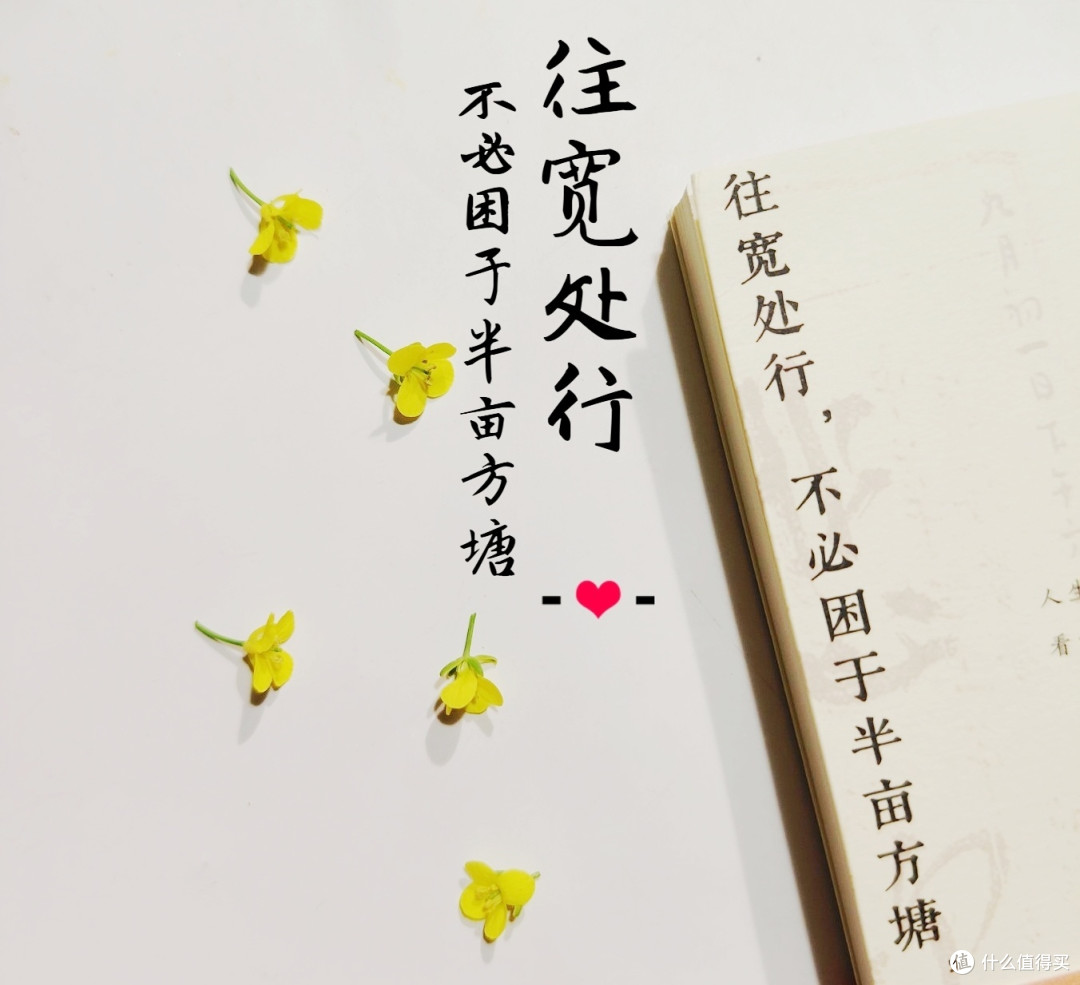 往宽处行
不必困于半亩方塘
往宽处行，不必困于半亩方塘，
人生
看
值 什么值得买